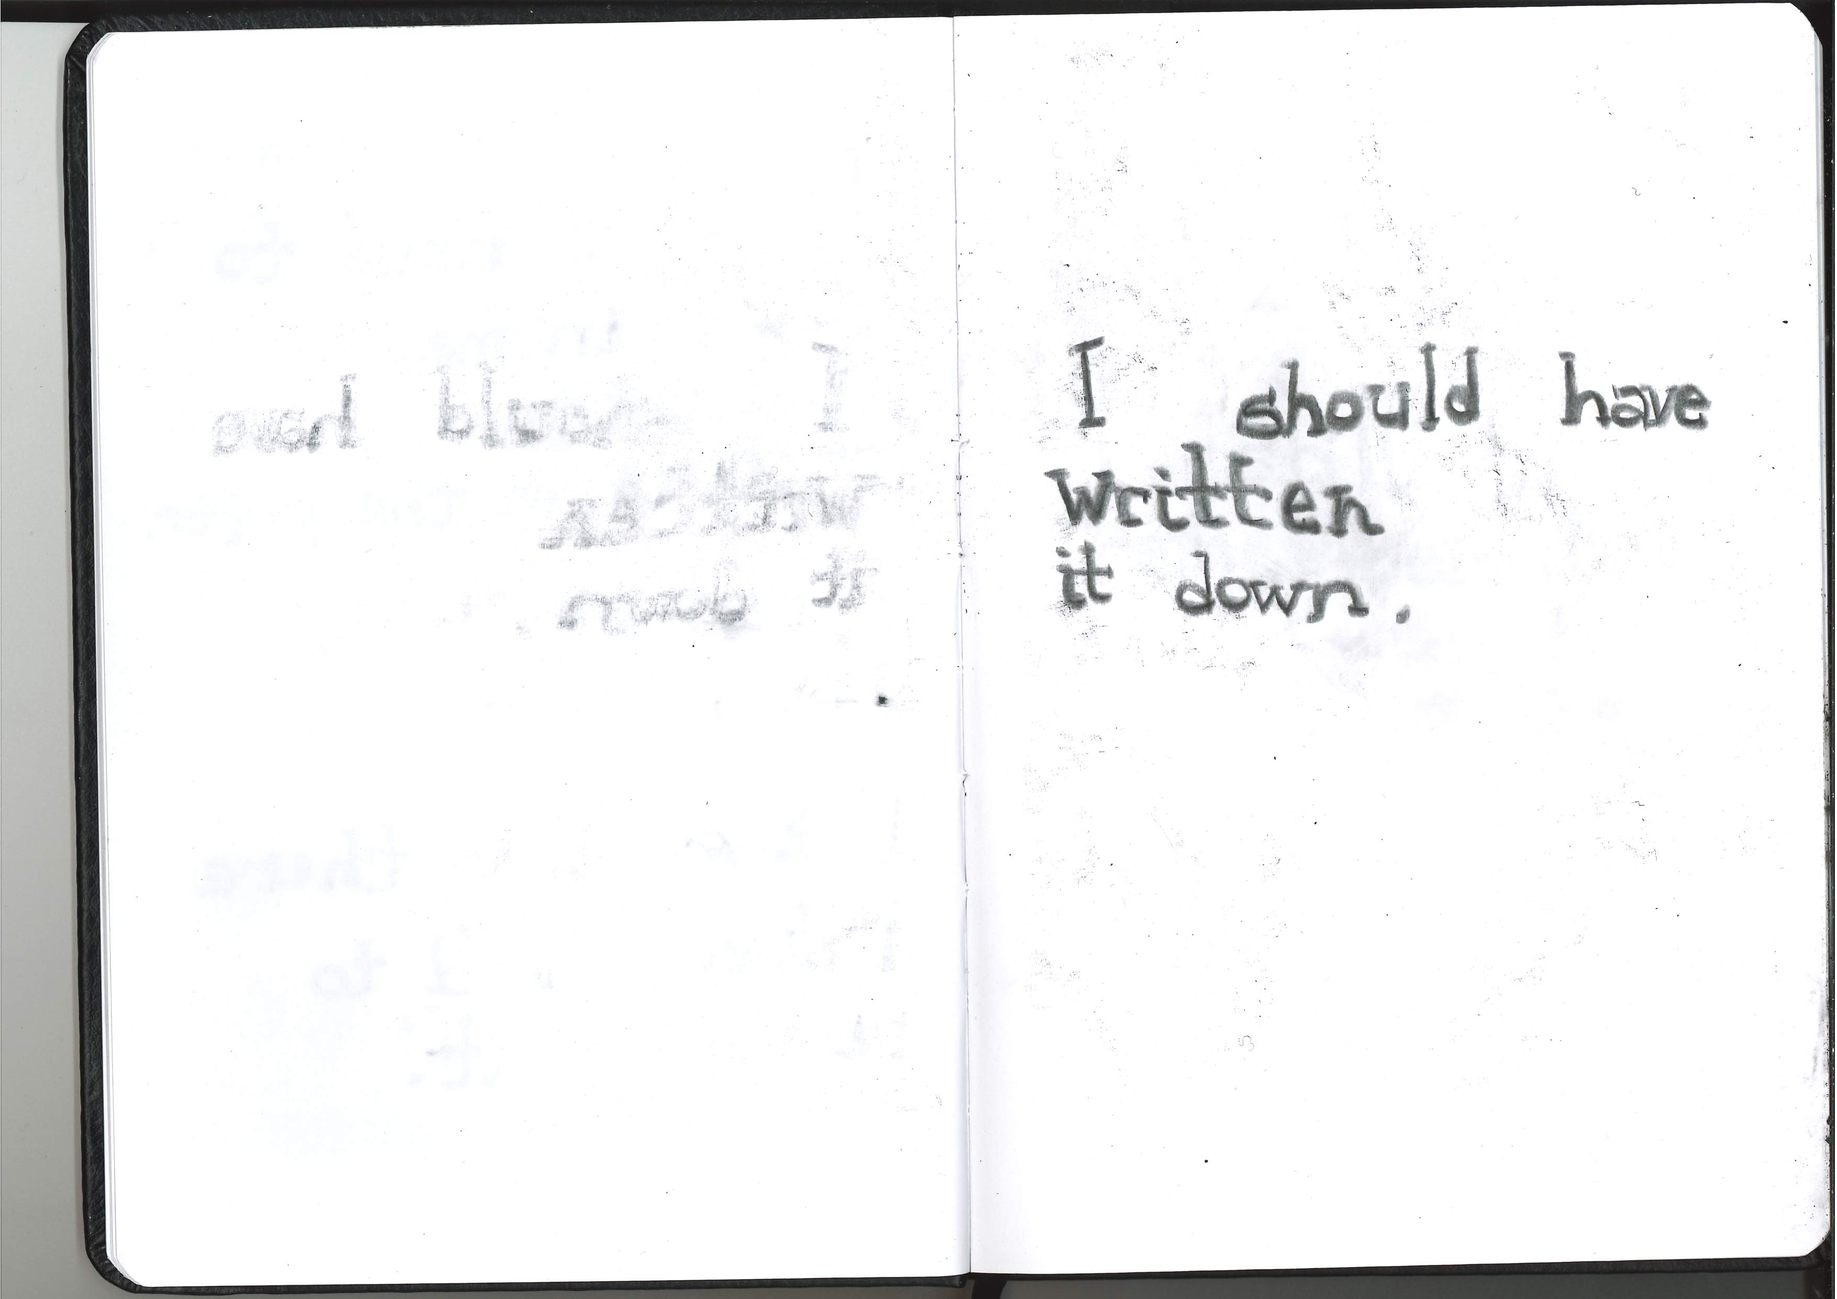 I should have
written
it down.